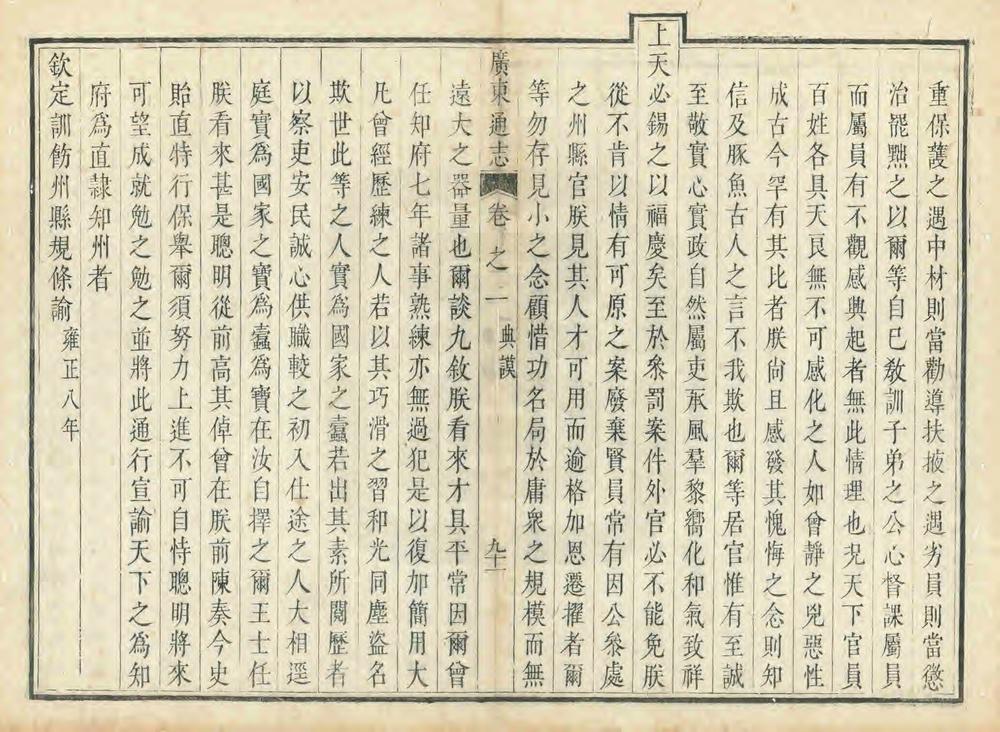 重保護之遇中材則當勸導扶掖之遇劣員則當懲
治罷黜之以爾等自已教訓子弟之公心督課屬員
而屬員有不觀感興起者無此情理也况天下官員
百姓各具天良無不可感化之人如曾靜之兇惡性
成古今罕有其比者朕尙且感發其愧悔之念則知
信及豚魚古人之言不我欺也爾等居官惟有至誠
至敬實心實政自然屬吏承風羣黎嚮化和氣致祥
上天必錫之以福慶矣至於叅罰案件外官必不能免朕
從不肯以情有可原之案廢棄賢員常有因公叅處
之州縣官朕見其人才可用而逾格加恩遷擢者爾
等勿存見小之念顧惜功名局於庸衆之規模而無
廣東通志 卷之一 典謨 九十一
遠大之器量也爾談九敘朕看來才具平常因爾曾
任知府七年諸事熟練亦無過犯是以復加簡用大
凡曾經歷練之人若以其巧滑之習和光同塵盜名
欺世此等之人實爲國家之蠹若出其素所閱歷者
以察吏安民誠心供職較之初入仕途之人大相逕
庭實爲國家之寶爲蠹爲寶在汝自擇之爾王士任
朕看來甚是聰明從前高其倬曾在朕前陳奏今史
貽直特行保舉爾須努力上進不可自恃聰明將來
可望成就勉之勉之並將此通行宣諭天下之爲知
府爲直隷知州者
欽定訓飭州縣規條諭 雍正八年